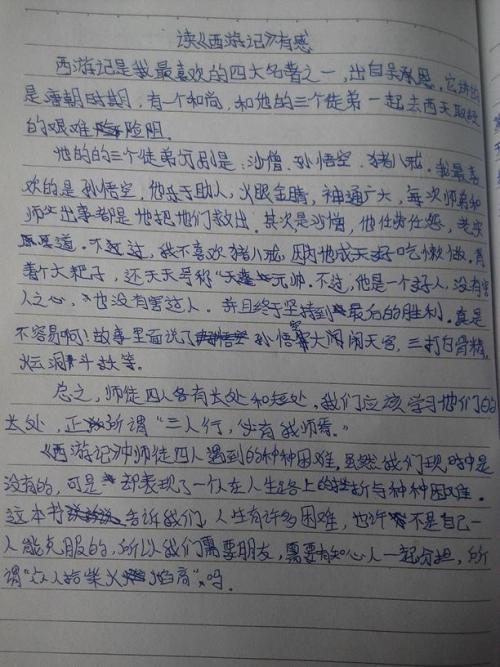 读《西游记》有感
西游记是我最喜欢的四大名著之一，出自吴承恩，它讲的
是唐朝时期，有一个和尚，和他的三个徒弟一起去西天取经
的艰难险阻。
他的的三个徒弟分别是：沙僧，孙悟空，猪八戒。我最喜
欢的是孙悟空，他乐于助人，火眼金睛，神通广大，每次师弟和
师父出事都是他把他们救出。其次是沙僧，他任劳任怨，老实
厚道。不过，我不喜欢猪八戒，因为他成天好吃懒做。
着个大耙子，还天天号称"天蓬元帅。不过，他是一个好人，没有害
人之心，也没有害过人，并且终于坚持到最后的胜利。真是
不容易啊！故事里面说了孙悟空大闹闹天宫，三打白骨精，
火云洞斗妖等。
总之，师徒四人各有长处和短处，我们应该学习他们的
长处，正所谓"三人行，必有我师焉。"
《西游记》中师徒四人遇到的种种困难，虽然我们现实中是
没有的，可是却表现了一个人在人生路上的挫折与种种困难。
这本书告诉我们，人生有许多困难，也许不是自己一
人能克服的，所以我们需要朋友，需要有知心人一起分担，所
谓"众人拾柴火焰高"，吗。